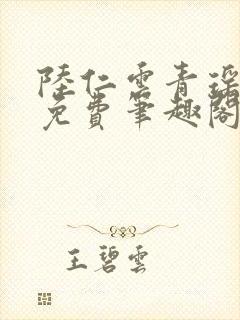 陸仁雲青瑤
免費筆趣閣
王碧雲